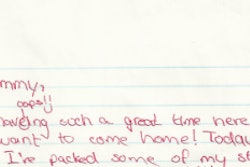 mmy,
oops!!
haveing such a great time here
want to come home! Today
I've packed some of my s